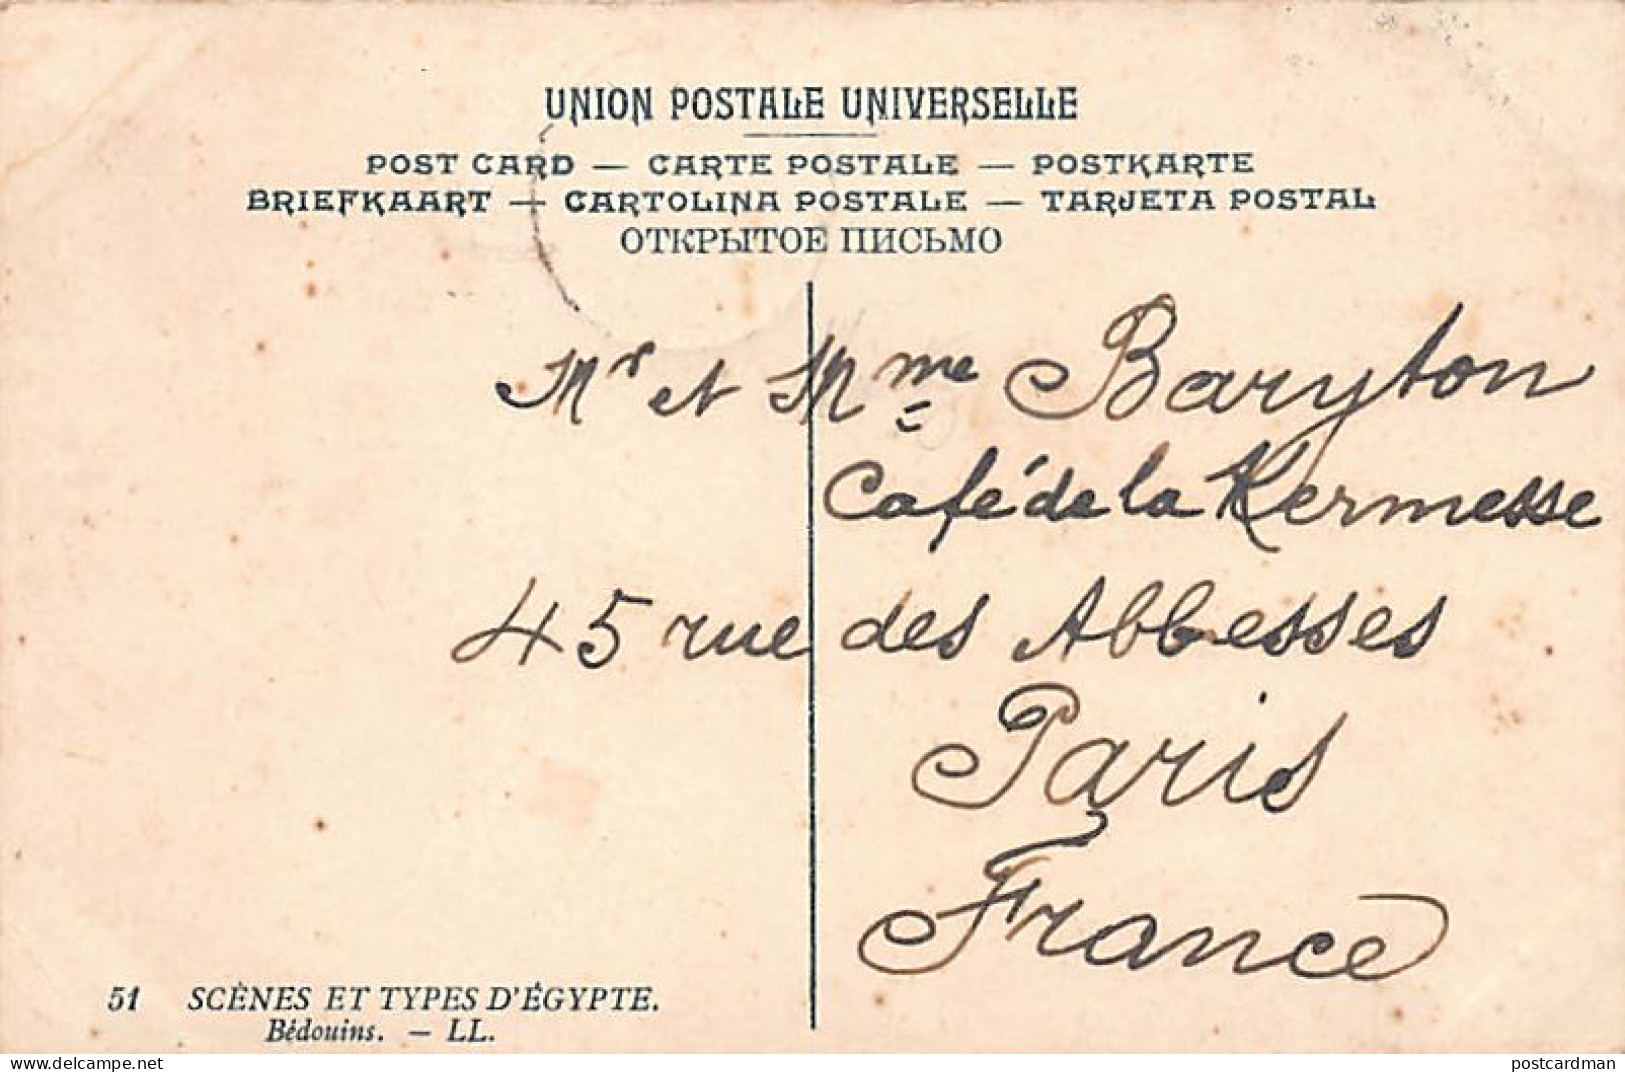 UNION POSTALE UNIVERSELLE
POST CARD — CARTE POSTALE — POSTKARTE
BRIEFKAART — CARTOLINA POSTALE — TARJETA POSTAL
ОТКРЫТОЕ ПИСЬМО
Mr et Mme Baryton
Café de la Kermesse
45 rue des Abbesses
Paris
France
51 SCÈNES ET TYPES D'ÉGYPTE.
Bédouins. — LL.
delcampe.net
postcardman